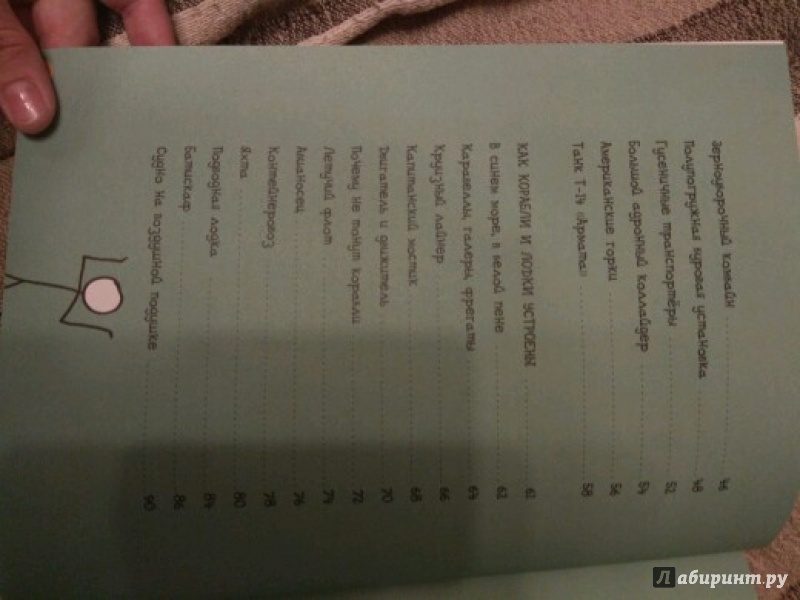 Зерноуборочный комбайн 46
Полупогружная буровая установка 48
Гусеничные транспортёры 52
Большой адронный коллайдер 54
Американские горки 56
Танк Т-14 «Армата» 58
КАК КОРАБЛИ И ЛОДКИ УСТРОЕНЫ 61
В синем море, в белой пене 62
Каравеллы, галеры, фрегаты 64
Круизный лайнер 66
Капитанский мостик 68
Двигатель и движитель 70
Почему не тонут корабли 72
Летучий флот 74
Авианосец 76
Контейнеровоз 78
Яхта 80
Подводная лодка 84
Батискаф 86
Судно на воздушной подушке 90
Лабиринт.ру